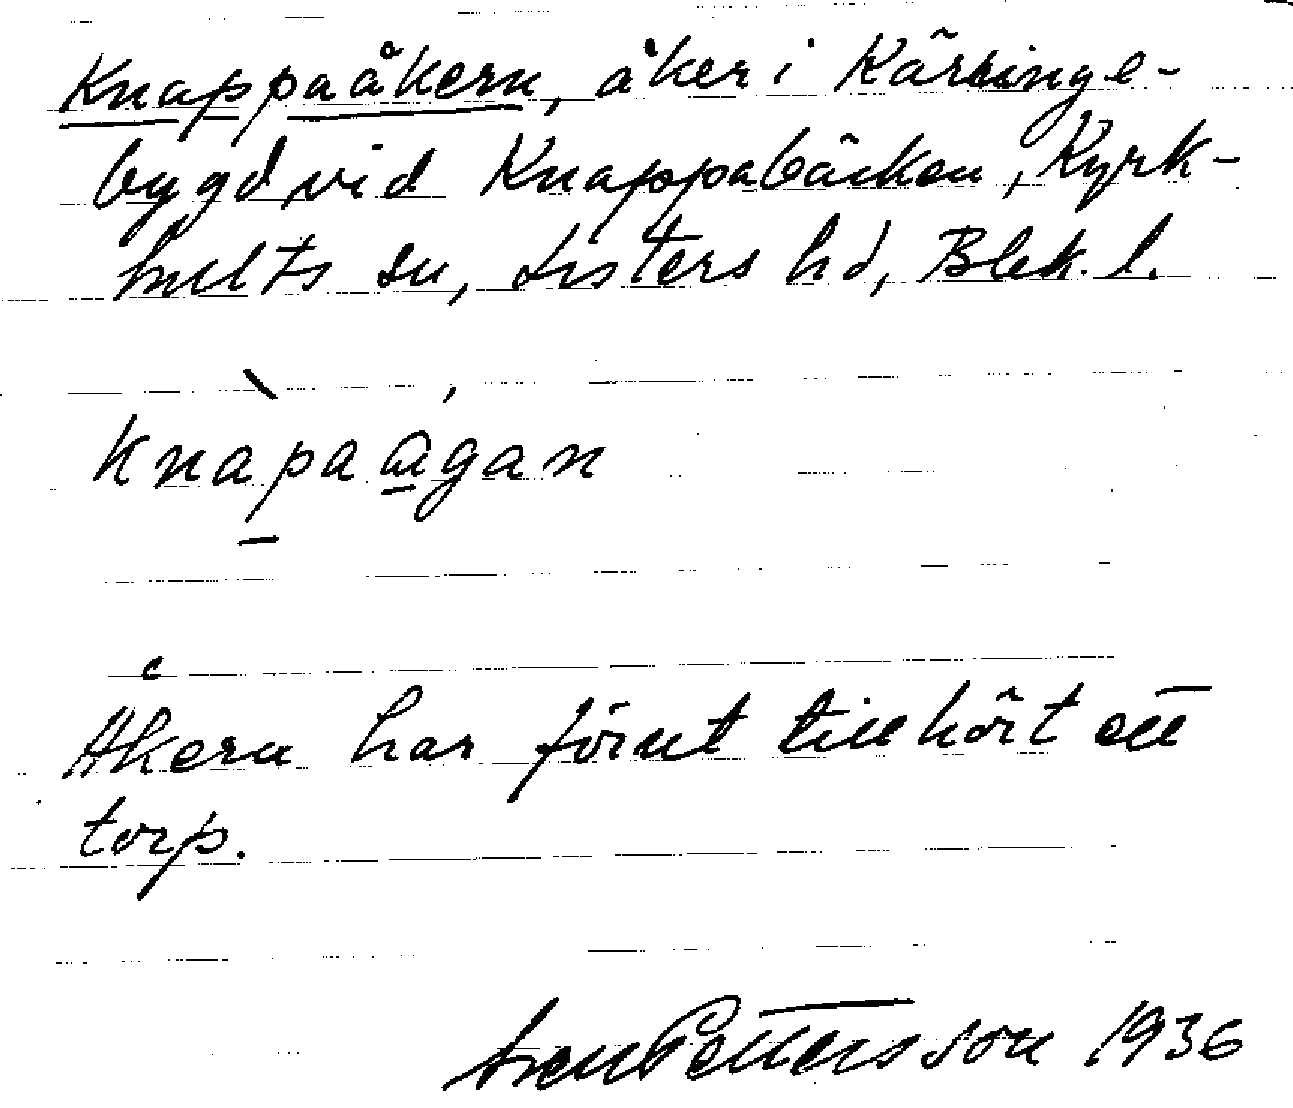 Knappaåkern, åker i Kärringe-
bygd vid Knappabäcken, Kyrk-
hults sn, Listers hd, Blek. l.
knàpaågan
Åkern har förut tillhört ett
torp.
Sven Pettersson 1936